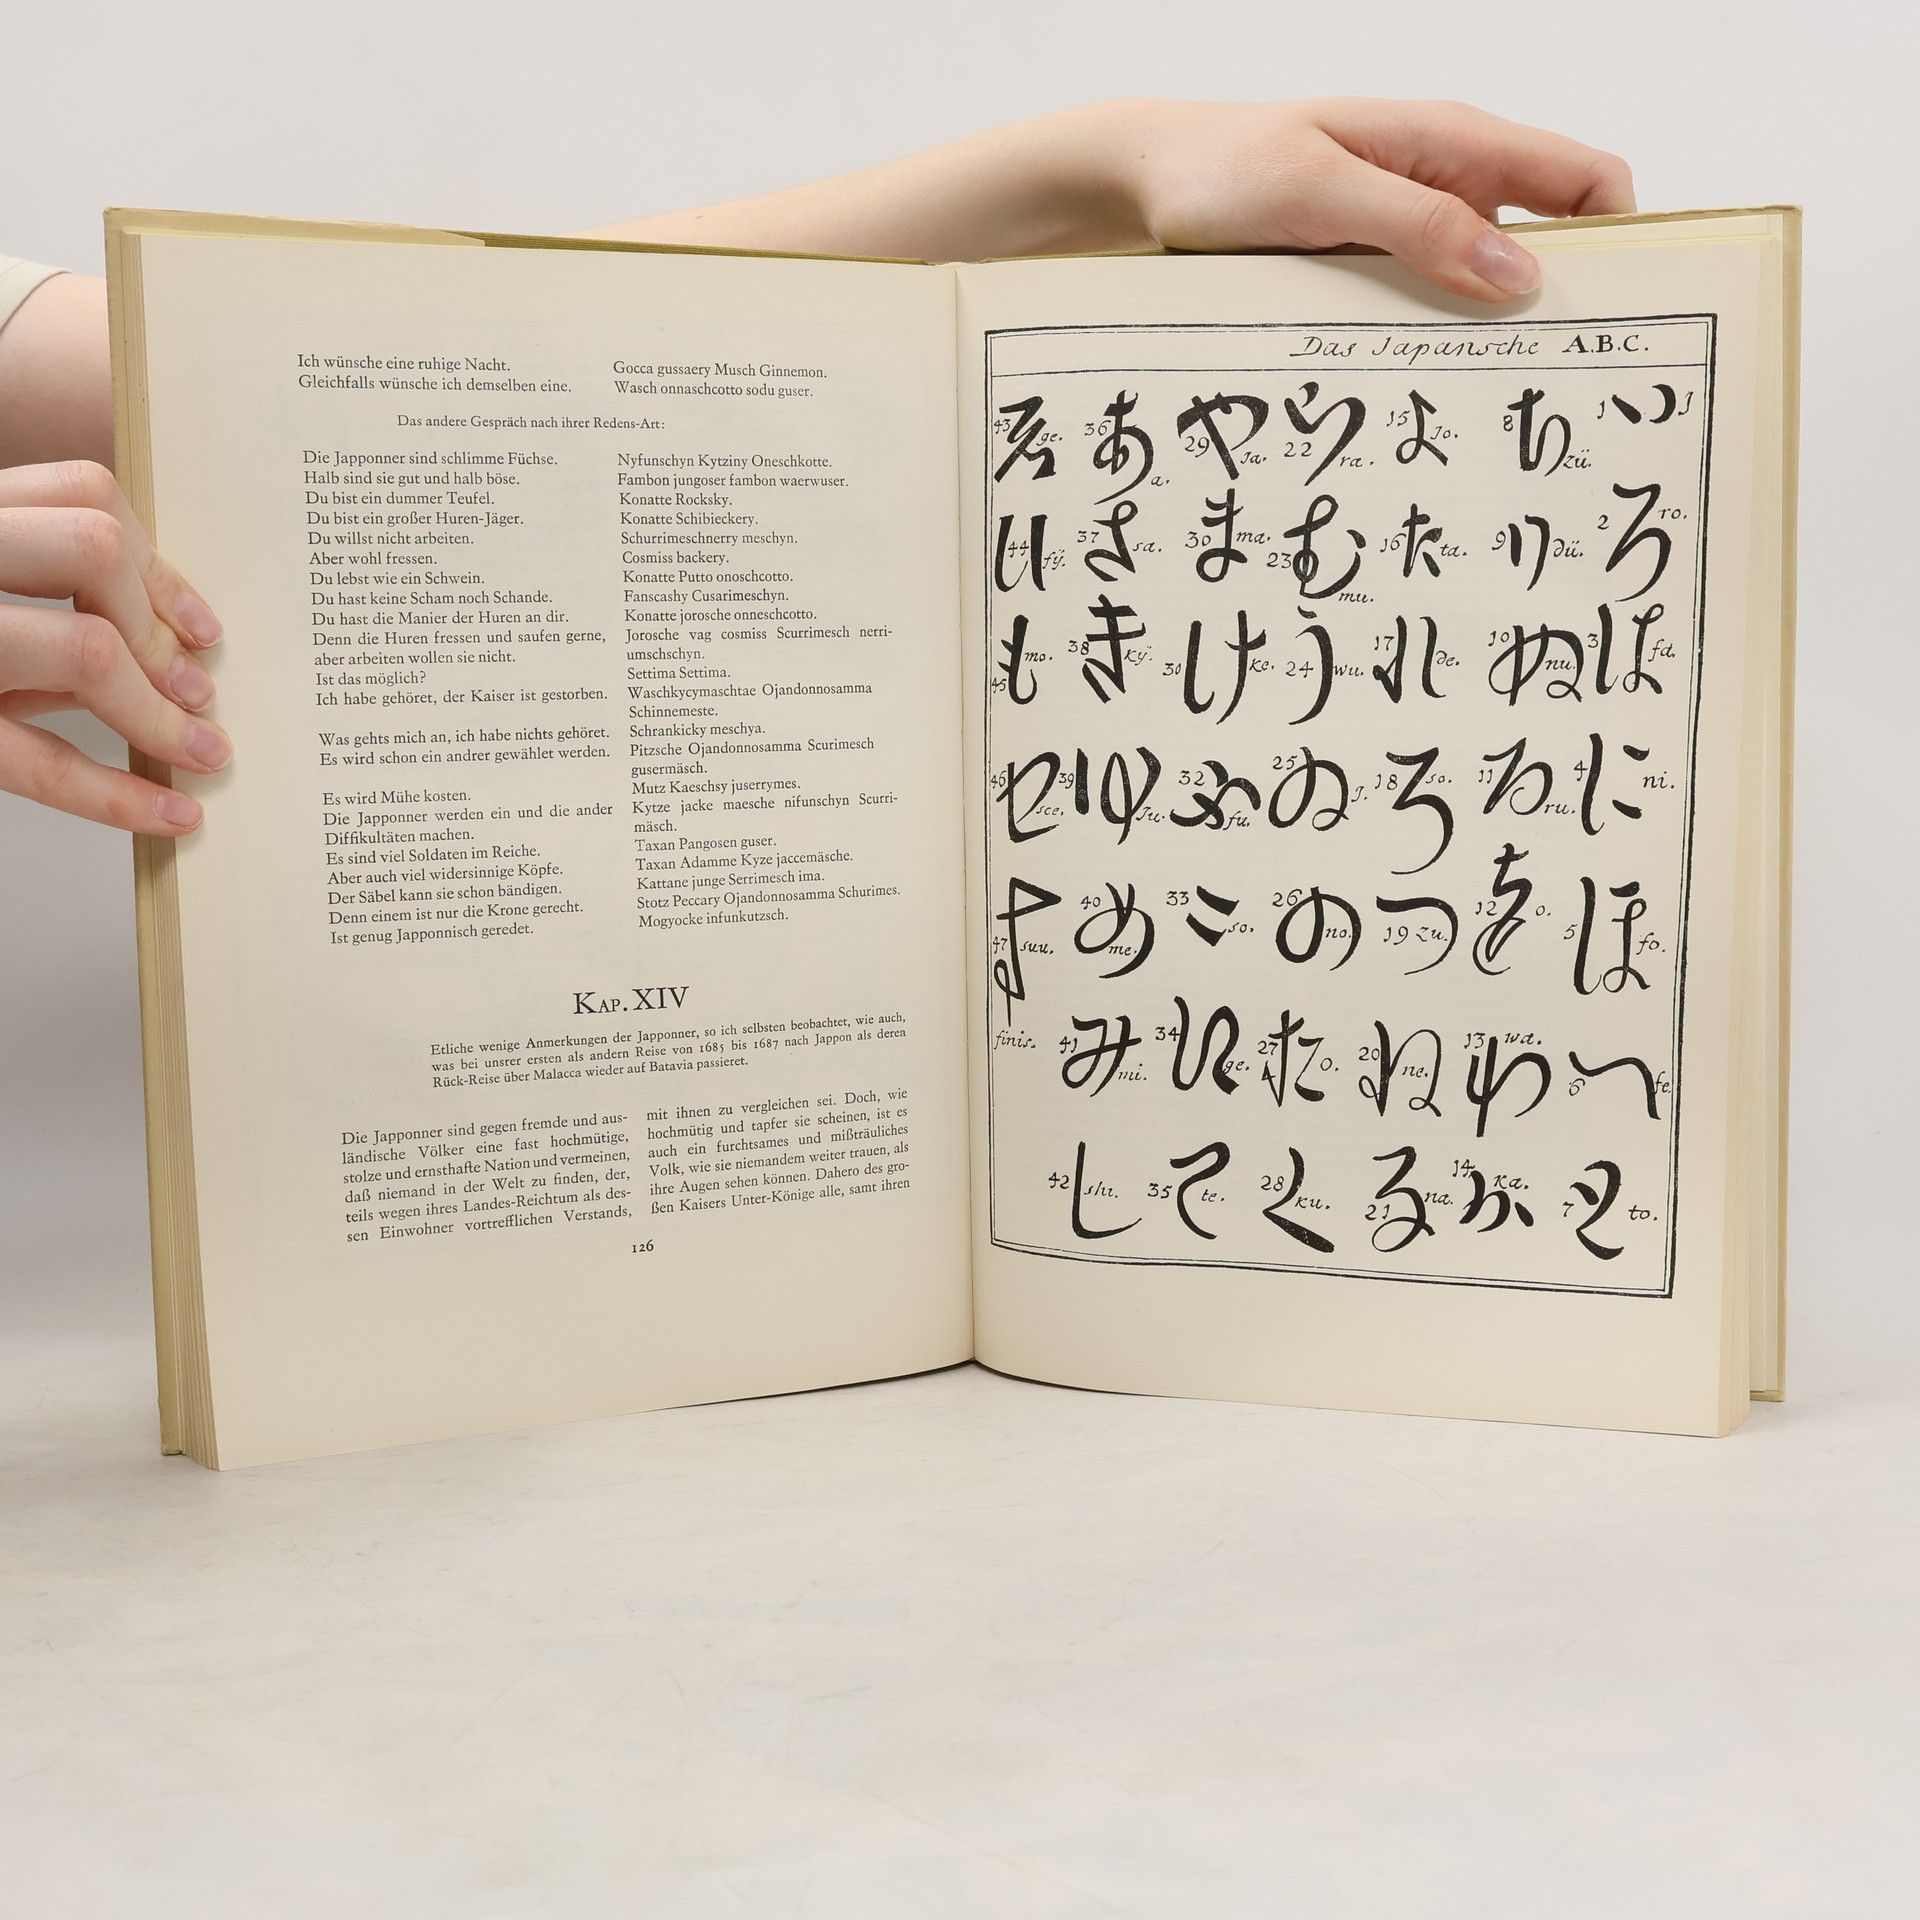 Ich wünsche eine ruhige Nacht.
Gleichfalls wünsche ich demselben eine.
Gocca gussaery Musch Ginnemon.
Wasch onnaschcotto sodu guser.
Das andere Gespräch nach ihrer Redens-Art:
Die Japponner sind schlimme Füchse.
Halb sind sie gut und halb böse.
Du bist ein dummer Teufel.
Du bist ein großer Huren-Jäger.
Du willst nicht arbeiten.
Aber wohl fressen.
Du lebst wie ein Schwein.
Du hast keine Scham noch Schande.
Du hast die Manier der Huren an dir.
Denn die Huren fressen und saufen gerne,
aber arbeiten wollen sie nicht.
Ist das möglich?
Ich habe gehöret, der Kaiser ist gestorben.
Was gehts mich an, ich habe nichts gehöret.
Es wird schon ein andrer gewählet werden.
Es wird Mühe kosten.
Die Japponner werden ein und die ander
Diffikultäten machen.
Es sind viel Soldaten im Reiche.
Aber auch viel widersinnige Köpfe.
Der Säbel kann sie schon bändigen.
Denn einem ist nur die Krone gerecht.
Ist genug Japponnisch geredet.
Nyfunschyn Kytziny Oneschkotte.
Fambon jungoser fambon waerwuser.
Konatte Rocksky.
Konatte Schibieckery.
Schurrimeschnerry meschyn.
Cosmiss backery.
Konatte Putto onoschcotto.
Fanscashy Cusarimeschyn.
Konatte jorosche onneschcotto.
Jorosche vag cosmiss Scurrimesch nerri-
umschschyn.
Settima Settima.
Waschkycymaschtae Ojandonnosamma
Schinnemeste.
Schrankicky meschya.
Pitzsche Ojandonnosamma Scurimesch
gusermäsch.
Mutz Kaeschsy juserrymes.
Kytze jacke maesche nifunschyn Scurri-
mäsch.
Taxan Pangosen guser.
Taxan Adamme Kyze jaccemäsche.
Kattane junge Serrimesch ima.
Stotz Peccary Ojandonnosamma Schurimes.
Mogyocke infunkutzsch.
KAP. XIV
Etliche wenige Anmerkungen der Japponner, so ich selbsten beobachtet, wie auch,
was bei unsrer ersten als andern Reise von 1685 bis 1687 nach Jappon als deren
Rück-Reise über Malacca wieder auf Batavia passieret.
Die Japponner sind gegen fremde und aus-
ländische Völker eine fast hochmütige,
stolze und ernsthafte Nation und vermeinen,
daß niemand in der Welt zu finden, der,
teils wegen ihres Landes-Reichtum als des-
sen Einwohner vortrefflichen Verstands,
mit ihnen zu vergleichen sei. Doch, wie
hochmütig und tapfer sie scheinen, ist es
auch ein furchtsames und mißträuliches
Volk, wie sie niemandem weiter trauen, als
ihre Augen sehen können. Dahero des gro-
ßen Kaisers Unter-Könige alle, samt ihren
126
Das Japansche A.B.C.
1 い J
2 ろ ro.
3 は fa.
4 に ni.
5 ほ fo.
6 へ fe.
7 と to.
8 ち zü.
9 り dü.
10 ぬ nu.
11 る ru.
12 を o.
13 わ wa.
14 か ka.
15 よ Jo.
16 た ta.
17 れ de.
18 そ so.
19 つ zu.
20 ね ne.
21 な na.
22 ら ra.
23 む mu.
24 う wu.
25 ゐ J.
26 の no.
27 お o.
28 く ku.
29 や Ja.
30 ま ma.
30 け ke.
32 ふ fu.
33 こ so.
34 え ge.
35 て te.
36 あ a.
37 さ sa.
38 き kÿ.
39 ゆ Ju.
40 め me.
41 み mi.
42 し shi.
43 ゑ ge.
44 ひ fÿ.
45 も mo.
46 せ sce.
47 す suu.
finis.